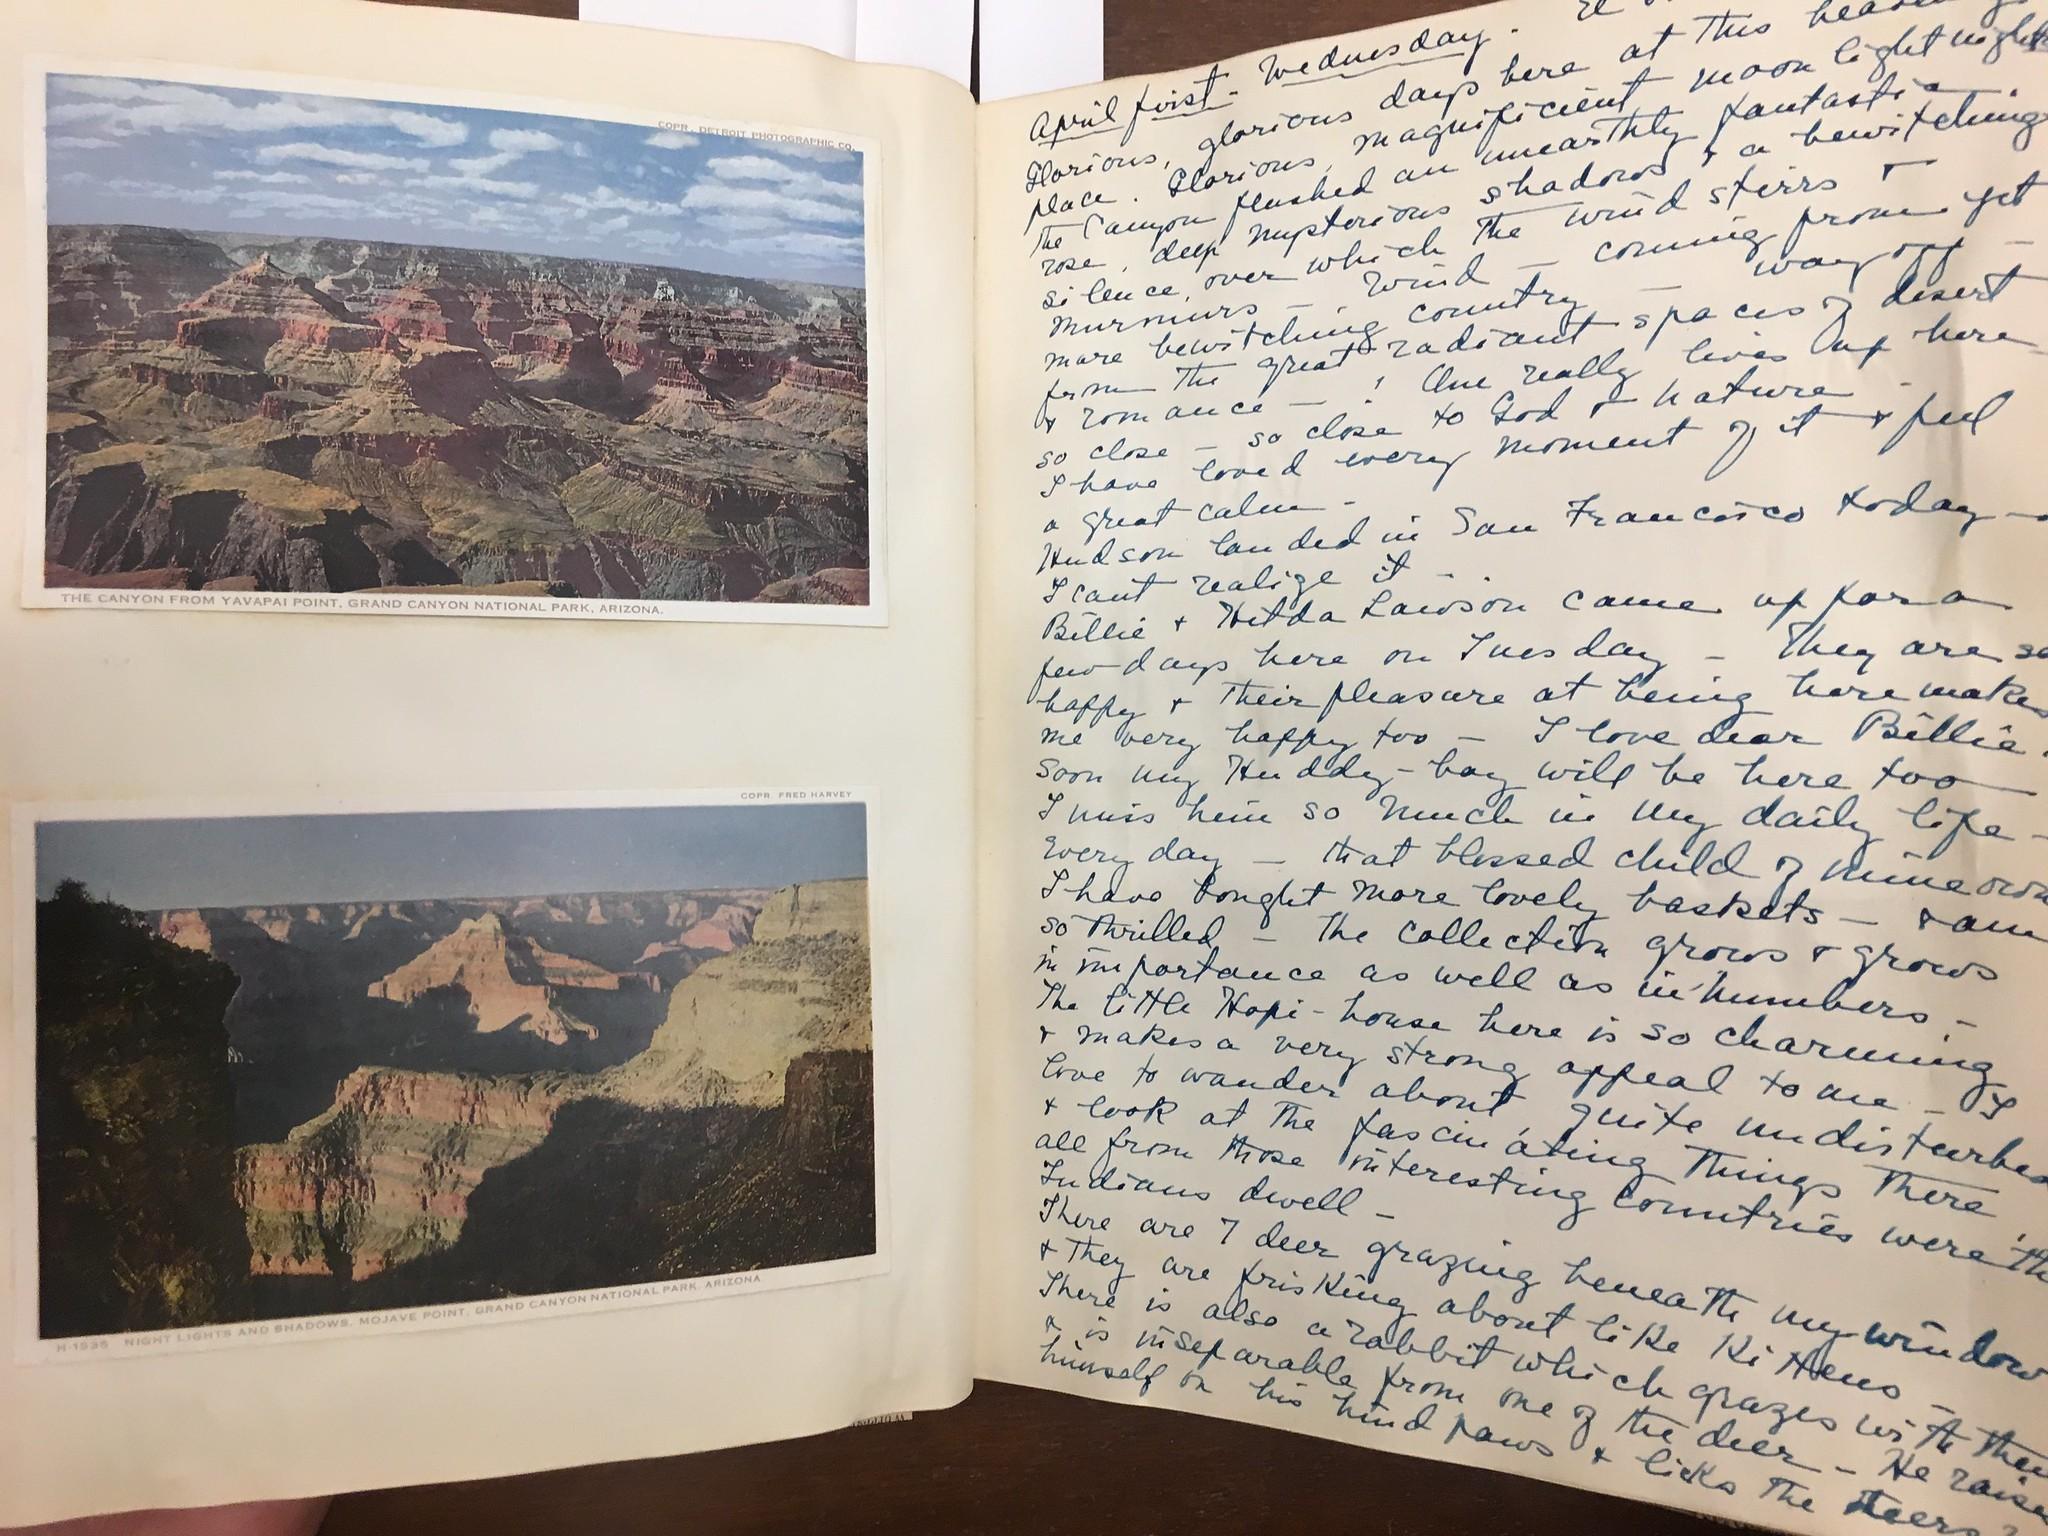 COPR. DETROIT PHOTOGRAPHIC CO.
THE CANYON FROM YAVAPAI POINT, GRAND CANYON NATIONAL PARK, ARIZONA.
COPR. FRED HARVEY
H-1535 NIGHT LIGHTS AND SHADOWS, MOJAVE POINT, GRAND CANYON NATIONAL PARK, ARIZONA
April first - Wednesday.
Glorious, glorious days here at this
place. Glorious, magnificient moon light nights
the Canyon flushed an unearthly fantastic
rose, deep mysterious shadows & a bewitching
silence, over which the wind stirrs &
murmurs - wind - coming from yet
more bewitching country - way off -
from the great radiant spaces of desert
& romance - ! One really lives up here
so close - so close to God & nature -
I have loved every moment of it & feel
a great calm -
Hudson landed in San Francisco today -
I cant realize it -
Billie & Hilda Lawson came up for a
few days here on Tuesday - They are so
happy & their pleasure at being here makes
me very happy too - I love dear Billie.
Soon my Huddy-boy will be here too -
I miss him so much in my daily life -
Every day - that blessed child of mine own
I have bought more lovely baskets - & am
so thrilled - the collection grows & grows
in importance as well as in numbers -
The little Hopi-house here is so charming
& makes a very strong appeal to me - I
love to wander about, quite undisturbed
& look at the fascinating things there,
all from those interesting countries were the
Indians dwell -
There are 7 deer grazing beneath my window
& they are frisking about like kittens -
There is also a rabbit which grazes with them
& is inseparable from one of the deer - He raises
himself on his hind paws & licks the